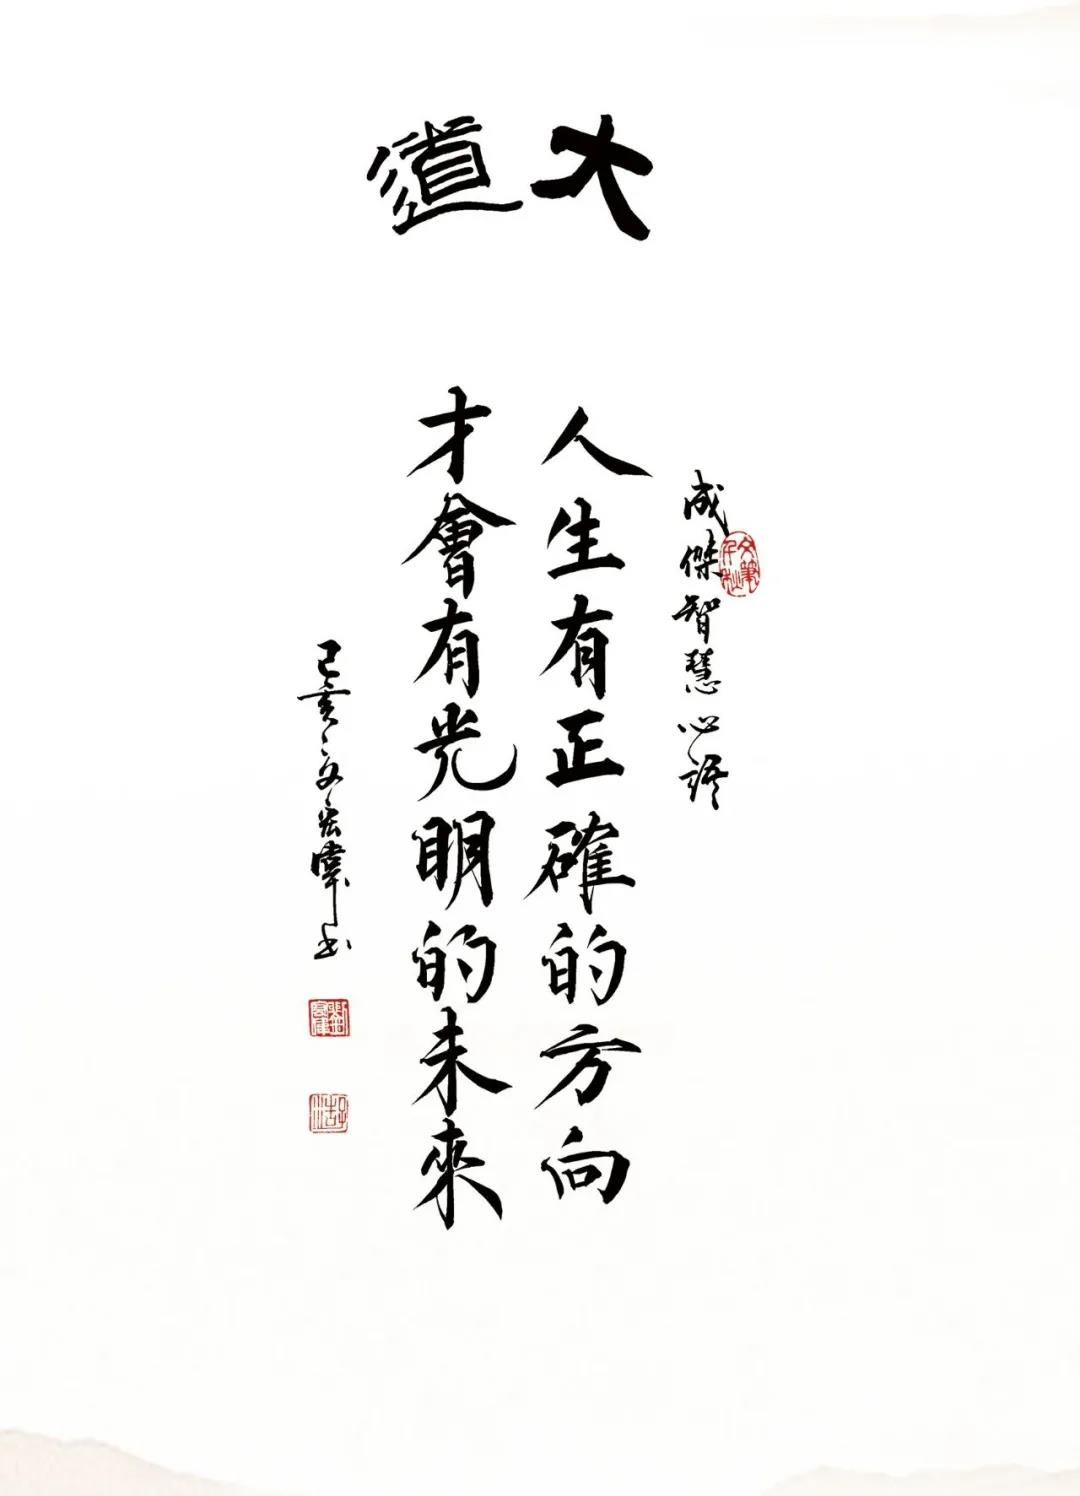 大道
成傑智慧心語
人生有正確的方向
才會有光明的未來
己亥文宏偉书